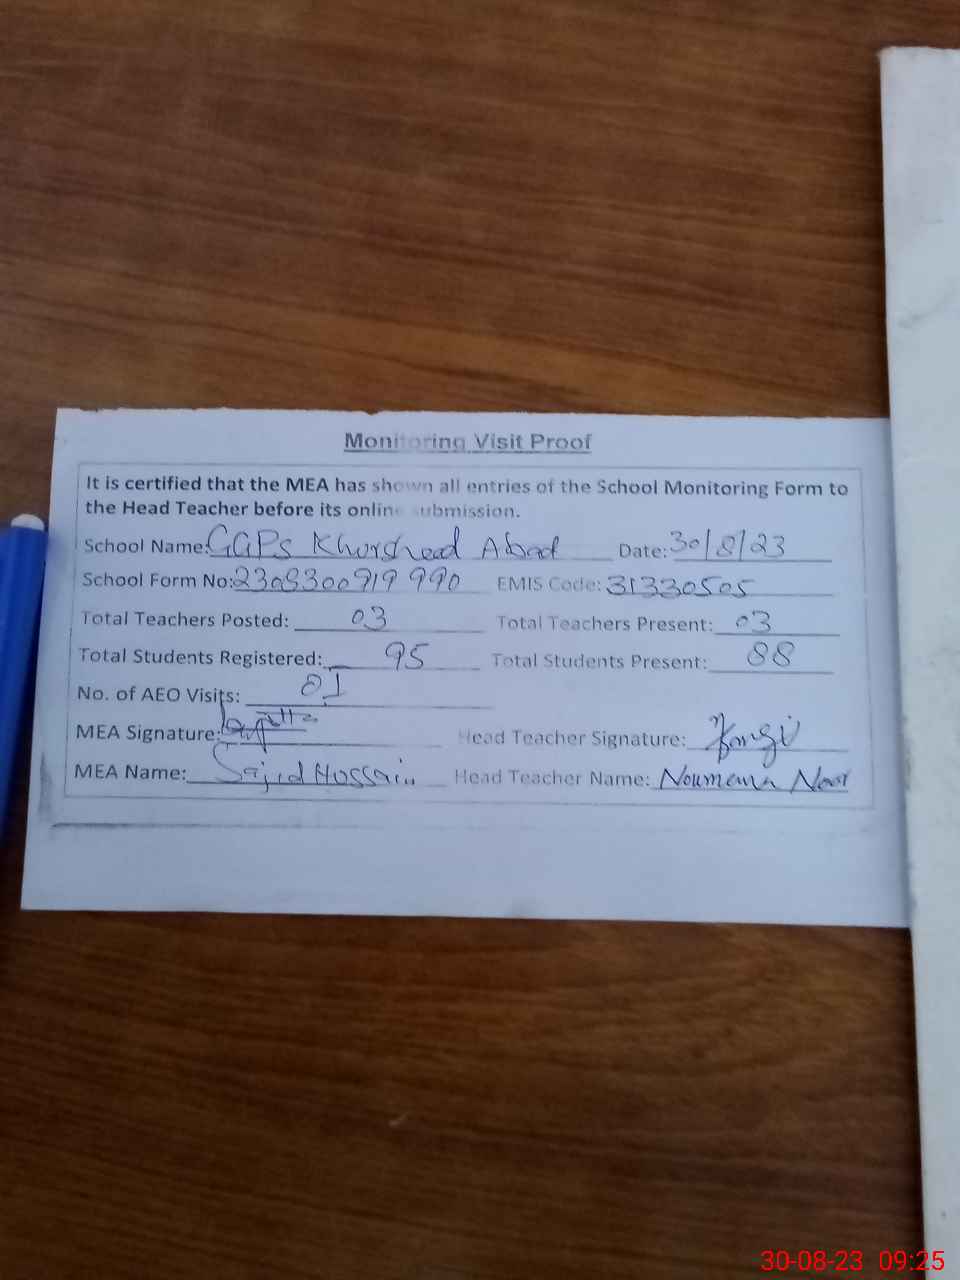 Monitoring Visit Proof
It is certified that the MEA has shown all entries of the School Monitoring Form to
the Head Teacher before its online submission.
School Name: GGPS Khorshead Abad Date: 30/8/23
School Form No: 2308300919990 EMIS Code: 31330505
Total Teachers Posted: 03 Total Teachers Present: 03
Total Students Registered: 95 Total Students Present: 88
No. of AEO Visits: 01
MEA Signature: Head Teacher Signature:
MEA Name: Sajid Hussain Head Teacher Name: Noumena Noor
30-08-23 09:25